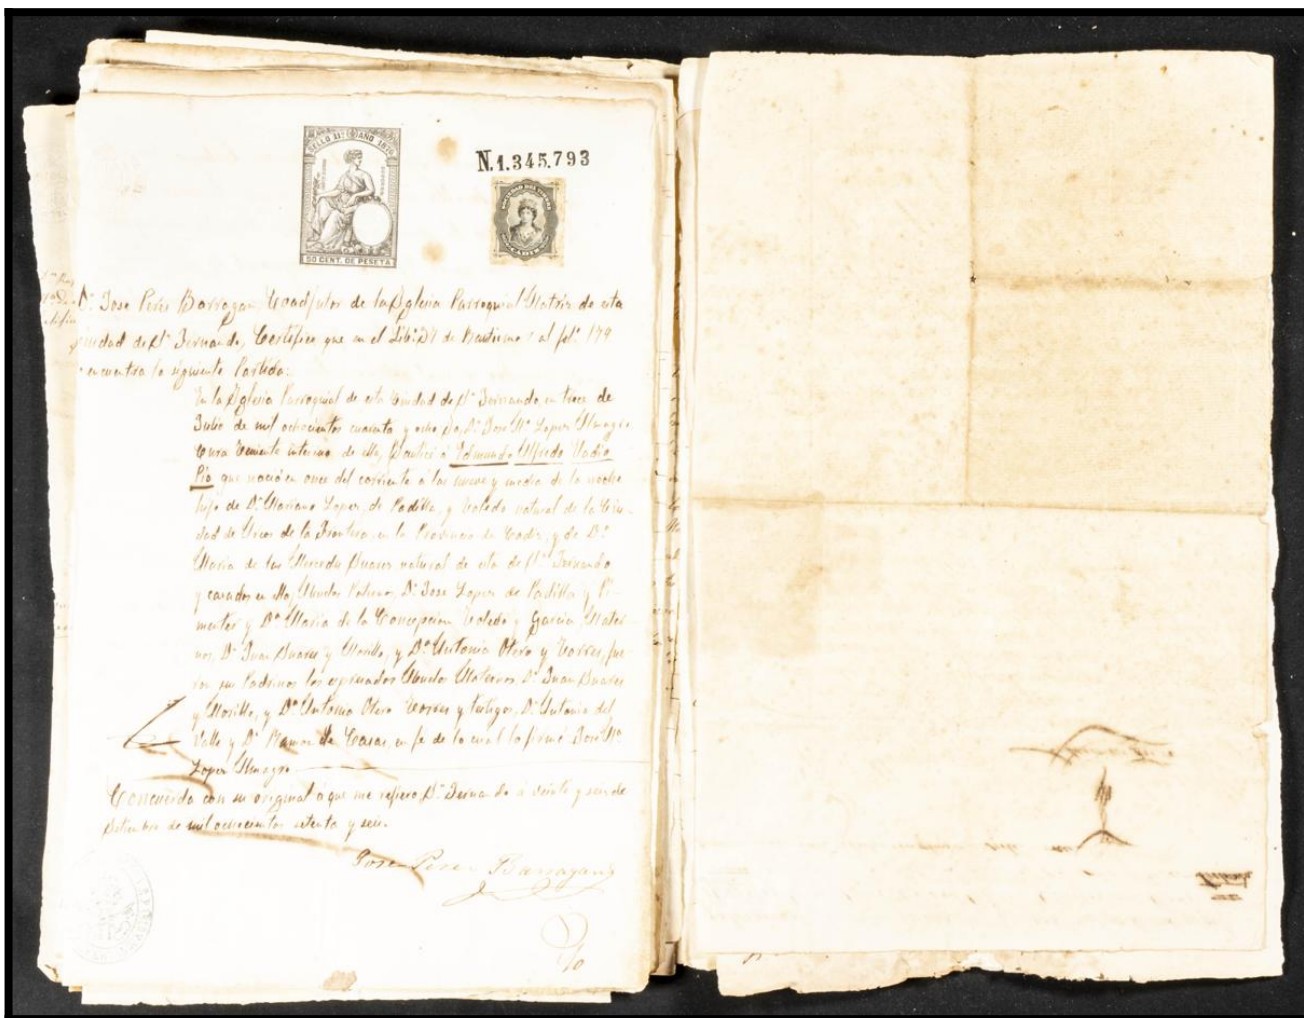 SELLO 11º AÑO 1876
50 CENT. DE PESETA
N.1.345.793
Dⁿ José Perez Barragan, Coadjutor de la Yglesia Parroquial Matriz de esta
ciudad de Sⁿ Fernando, Certifico que en el Libº 37 de Bautismos al folº 179
encuentra la siguiente Partida:
En la Yglesia Parroquial de esta Ciudad de Sⁿ Fernando, en trece de
Julio de mil ochocientos cuarenta y ocho, Yo, Dⁿ José Mª Lopez Almagro
Cura Teniente interino de ella, Bauticé á Edmundo Alfredo
Pio que nació en once del corriente á las nueve y media de la noche
hijo de Dⁿ Mariano Lopez de Padilla, y Toledo natural de la Ciu-
dad de Arcos de la Frontera, en la Provincia de Cadiz, y de Dª
Maria de las Mercedes Suarez natural de esta de Sⁿ Fernando
y casados en ella, Abuelos Paternos, Dⁿ José Lopez de Padilla y Pi-
mentel y Dª Maria de la Concepcion Toledo y Garcia, Mater-
nos, Dⁿ Juan Suarez y Morillo, y Dª Antonia Otero y Torres, fue-
ron sus Padrinos los expresados Abuelos Maternos Dⁿ Juan Suarez
y Morillo, y Dª Antonia Otero Torres y testigos, Dⁿ Antonio del
Valle y Dⁿ Ramon de Casas, en fe de lo cual lo firmé José Mª
Lopez Almagro
Concuerda con su original á que me refiero, Sⁿ Fernando á veinte y seis de
Setiembre de mil ochocientos setenta y seis.
José Perez Barragan